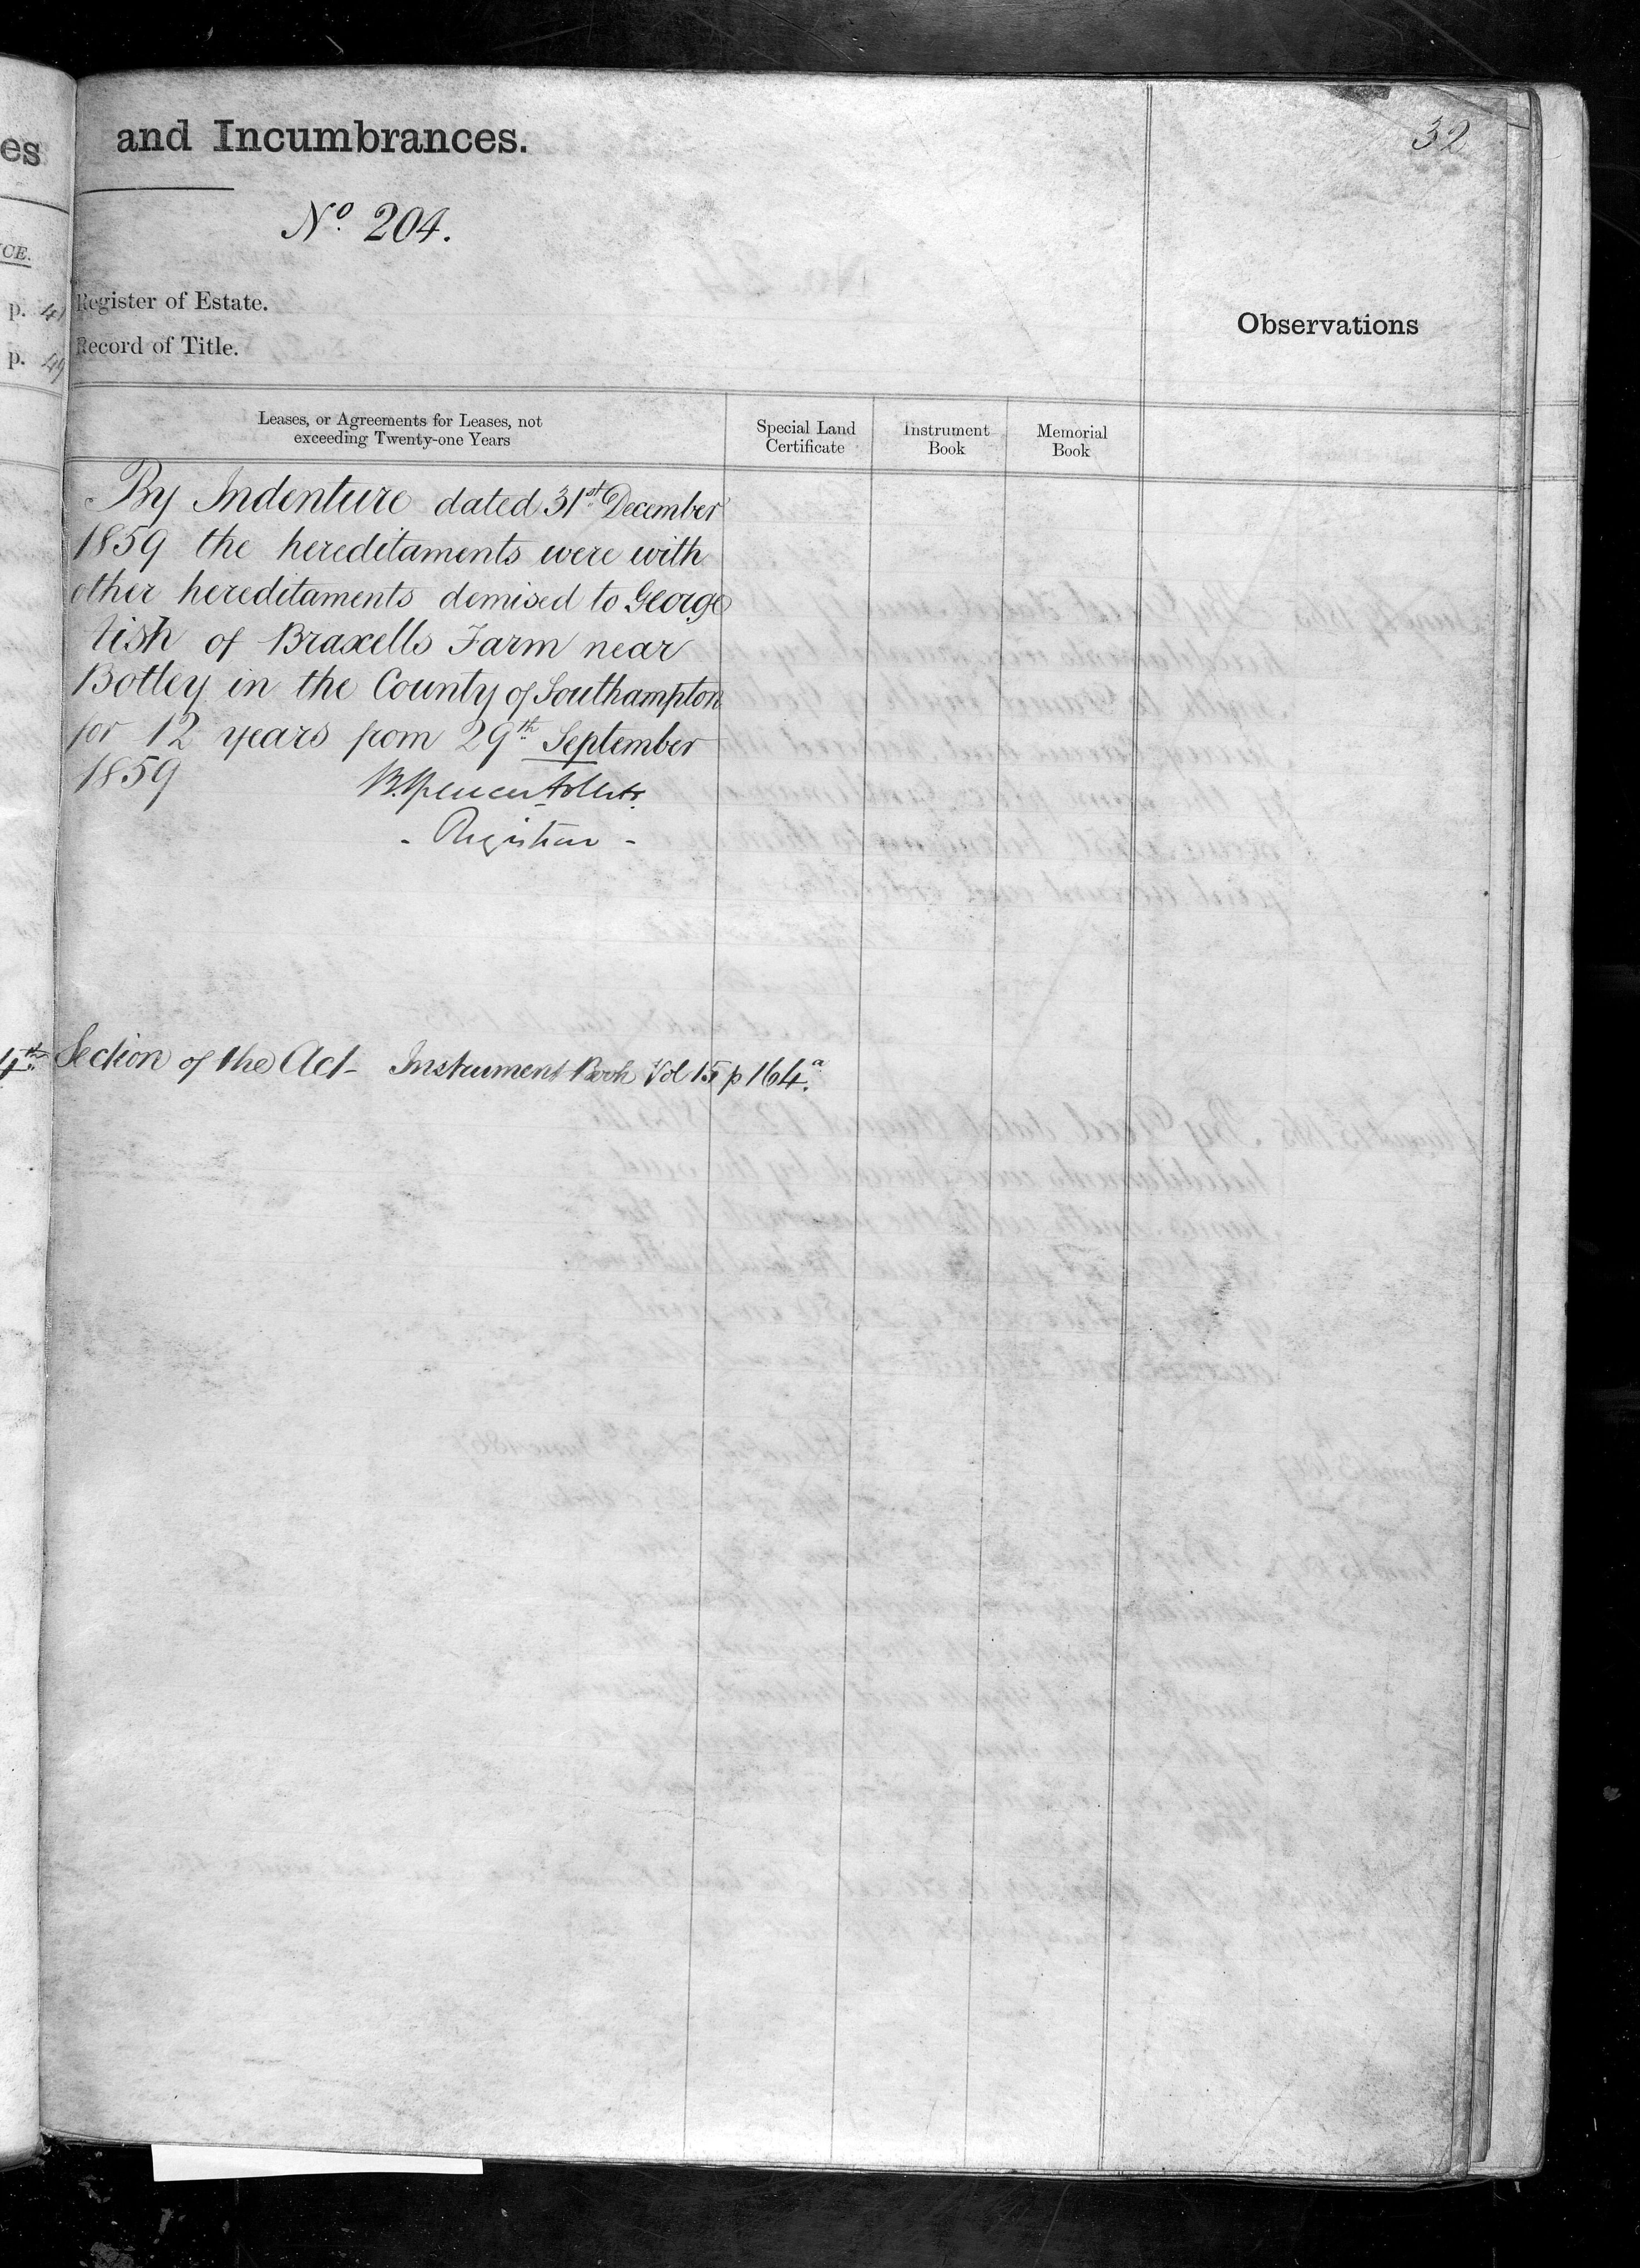 es and Incumbrances.
32
Nº 204.
CE.
p. 41 Register of Estate.
p. 49 Record of Title.
Observations
Leases, or Agreements for Leases, not
exceeding Twenty-one Years
Special Land
Certificate
Instrument
Book
Memorial
Book
By Indenture dated 31st December
1859 the hereditaments were with
other hereditaments demised to George
tish of Braxells Farm near
Botley in the County of Southampton
for 12 years from 29th September
1859
B. Spencer Follett
- Registrar -
4th Section of the Act - Instrument Book Vol 15 p 164.a